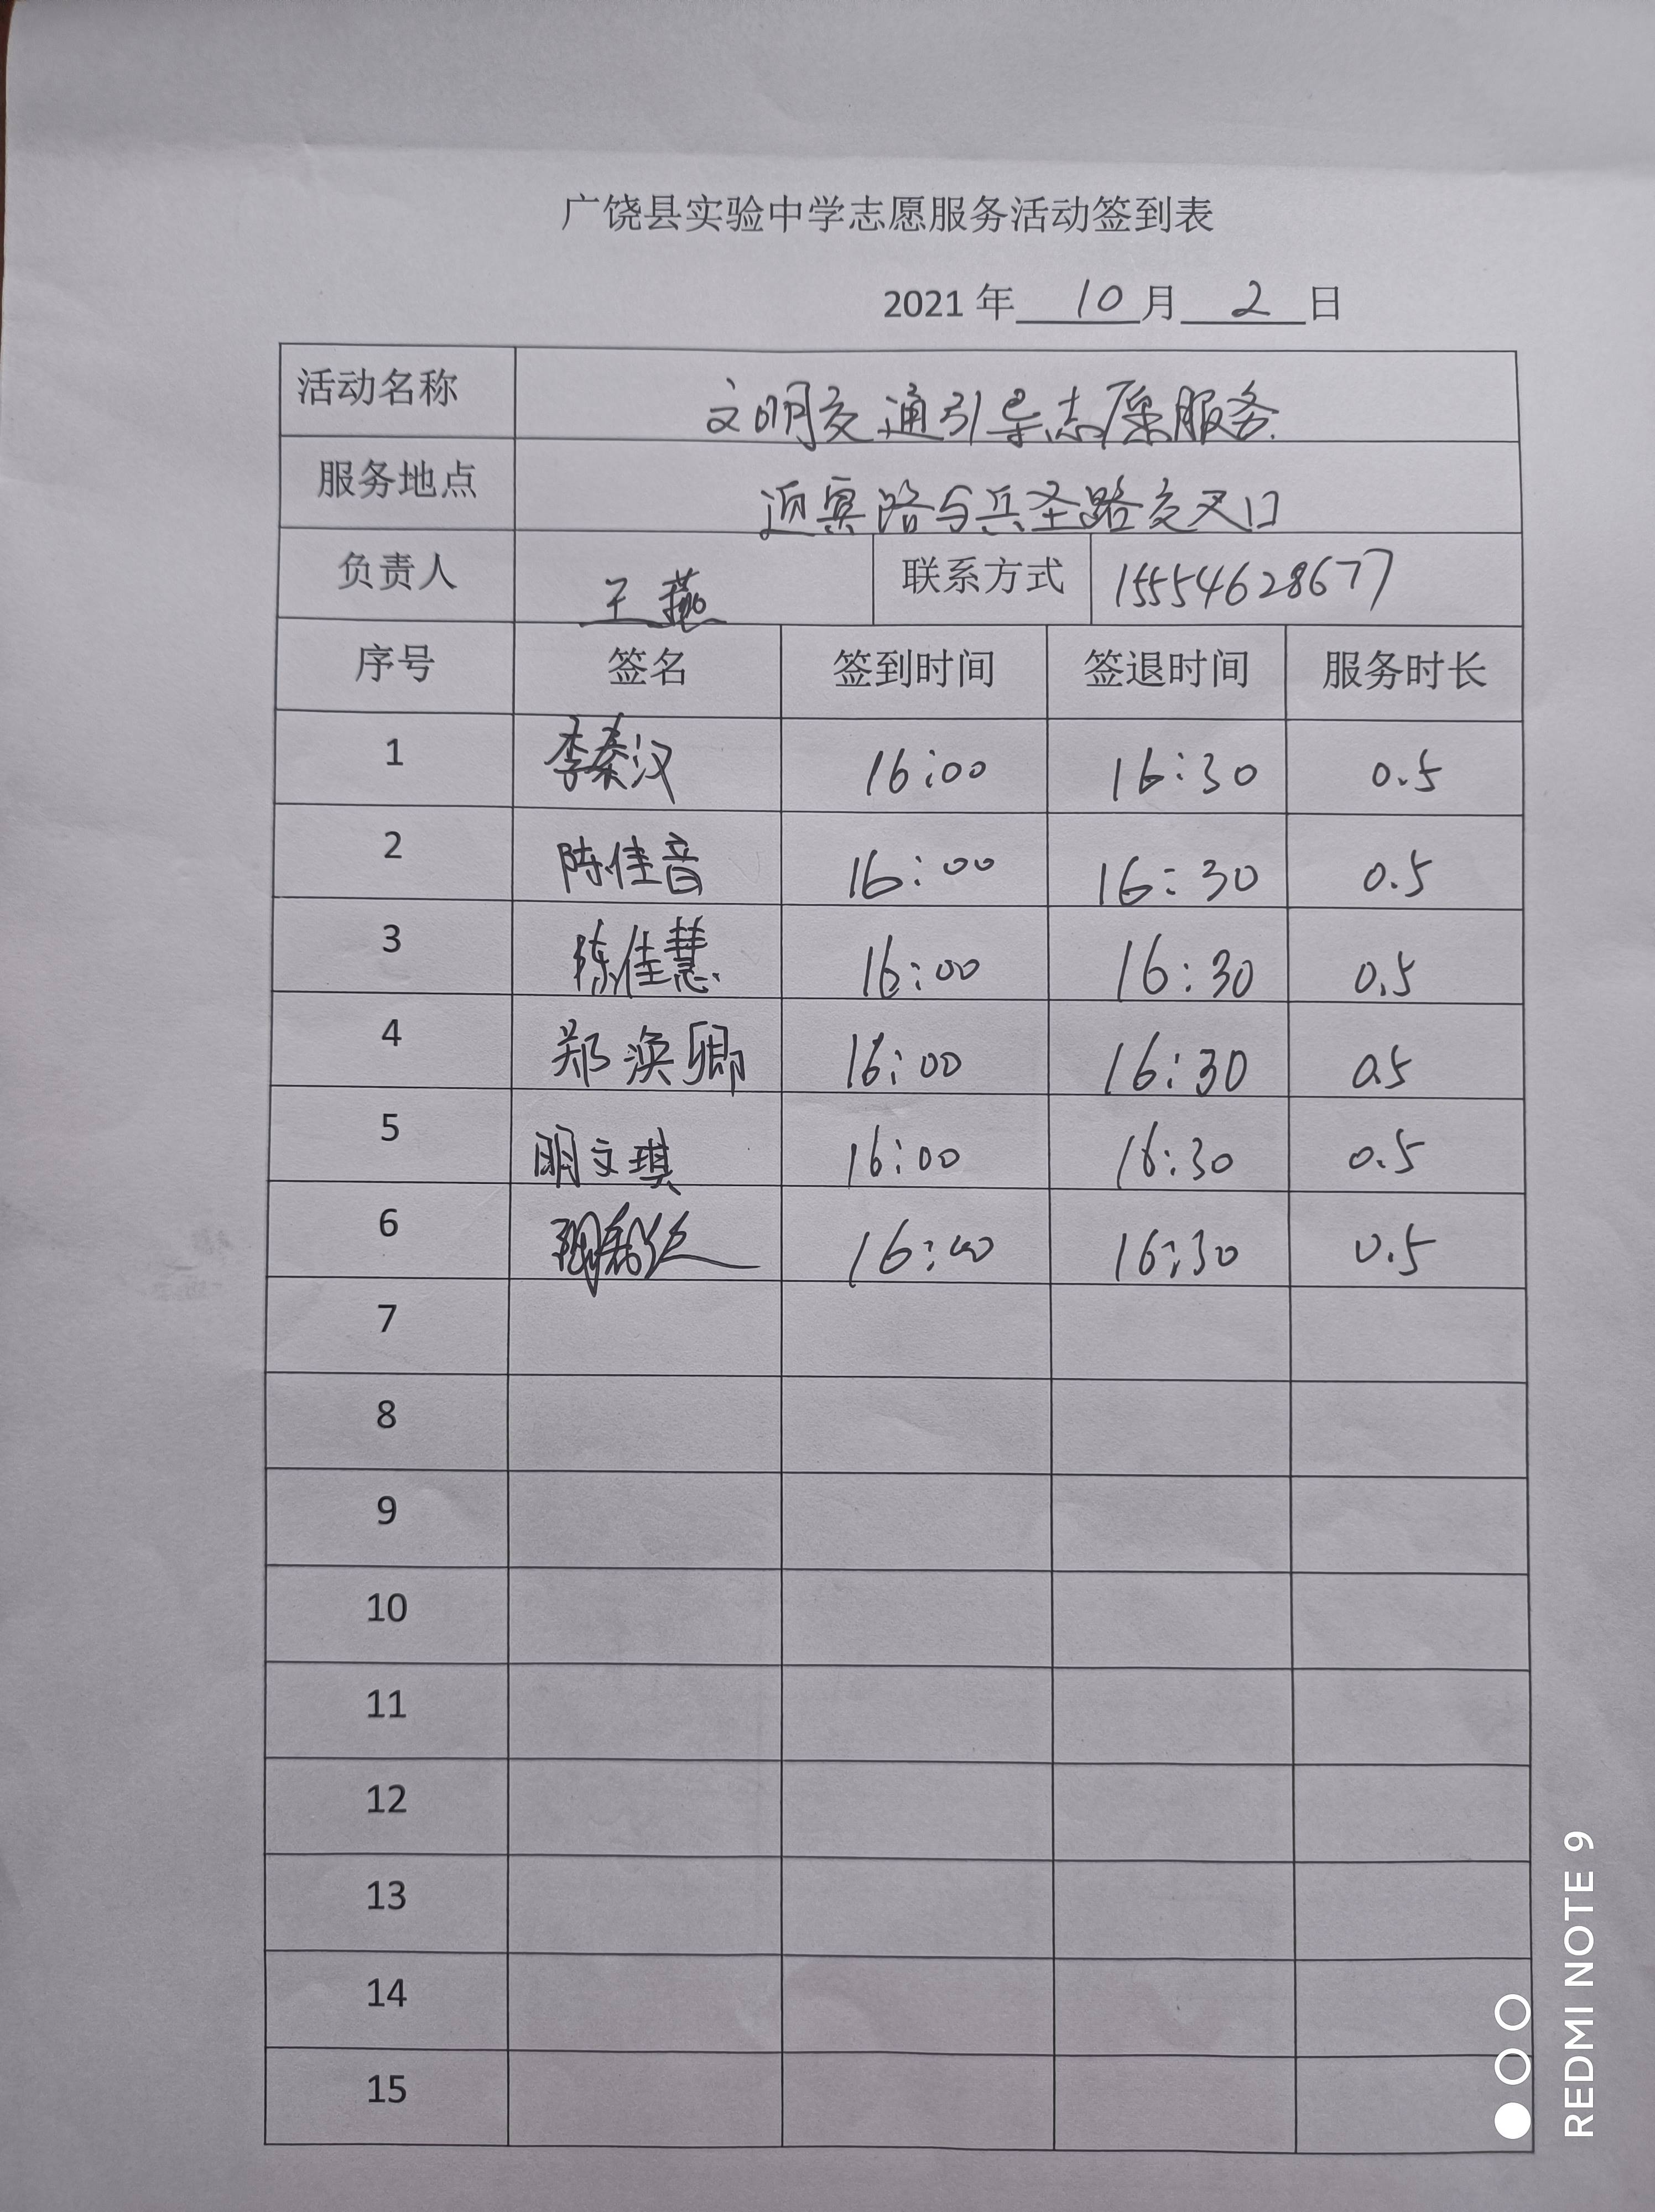 广饶县实验中学志愿服务活动签到表
2021 年 10 月 2 日
活动名称 文明交通引导志愿服务
服务地点 迎宾路与兵圣路交叉口
负责人 王燕 联系方式 15554628677
序号 签名 签到时间 签退时间 服务时长
1 李秦汉 16:00 16:30 0.5
2 陈佳音 16:00 16:30 0.5
3 陈佳慧 16:00 16:30 0.5
4 郑涣卿 16:00 16:30 0.5
5 明文琪 16:00 16:30 0.5
6 16:00 16:30 0.5
7
8
9
10
11
12
13
14
15
REDMI NOTE 9